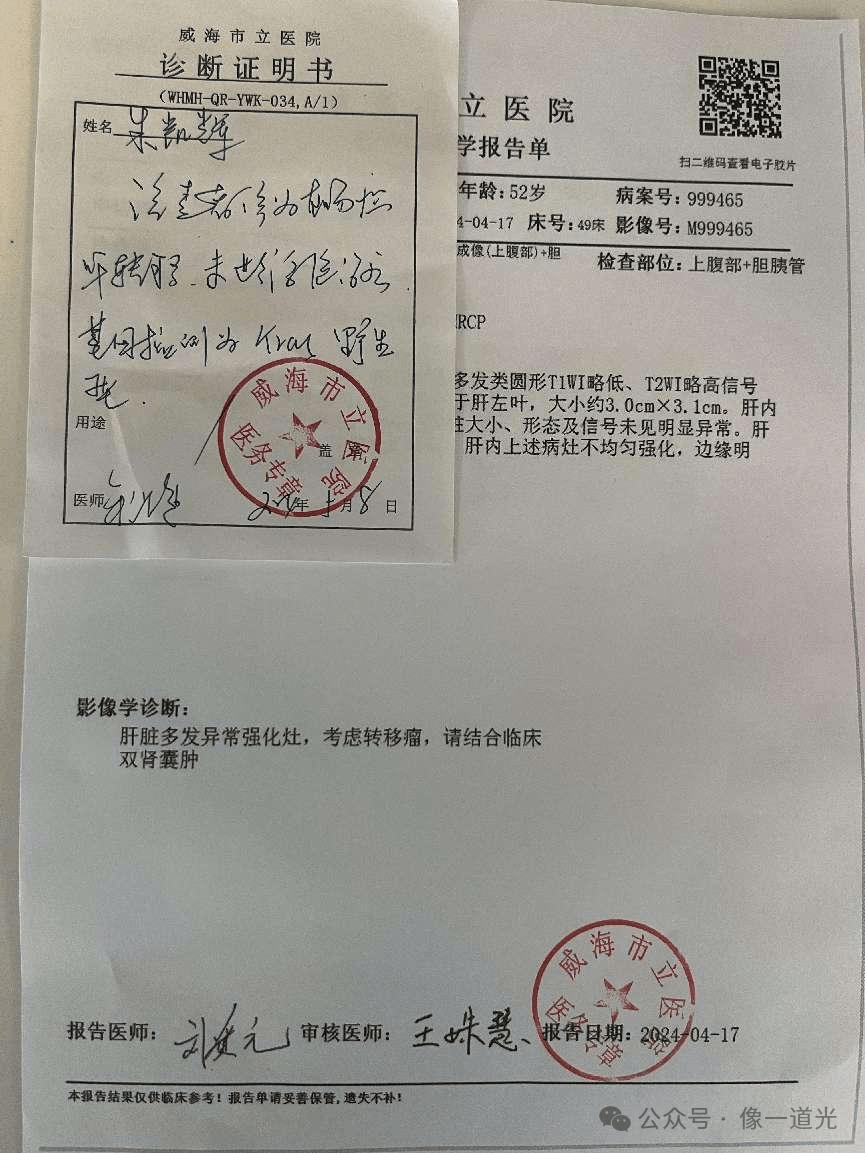 威海市立医院
诊断证明书
(WHMH-QR-YWK-034,A/1)
姓名 朱凯辉
该患者诊为
肝转移
基因检测为 Kras 野生
型.
用途
盖章
医师
年 月 8 日
威海市立医院
医务专章
立医院
学报告单
扫二维码查看电子胶片
年龄:52岁 病案号:999465
4-04-17 床号:49床 影像号:M999465
成像(上腹部)+胆 检查部位:上腹部+胆胰管
RCP
多发类圆形T1WI略低、T2WI略高信号
于肝左叶,大小约3.0cm×3.1cm。肝内
大小、形态及信号未见明显异常。肝
肝内上述病灶不均匀强化,边缘明
影像学诊断:
肝脏多发异常强化灶,考虑转移瘤,请结合临床
双肾囊肿
报告医师: 审核医师:王姝慧 报告日期:2024-04-17
威海市立医院
医务专章
本报告结果仅供临床参考!报告单请妥善保管,遗失不补!
公众号·像一道光